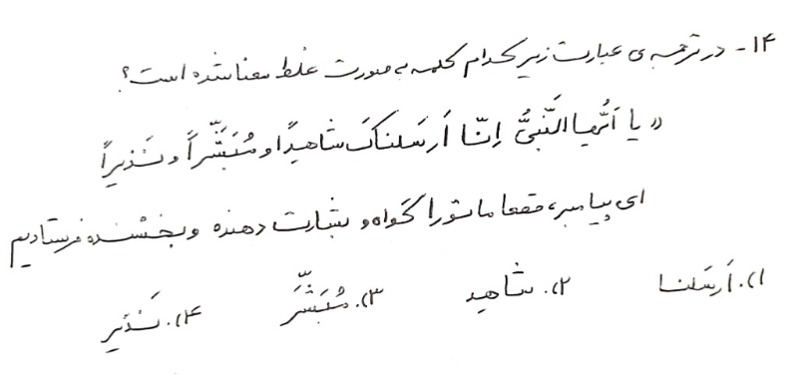 ۱۴- در ترجمه ی عبارت زیر کدام کلمه به صورت غلط معنا شده است؟
« یا اَیُّها النَّبیُّ اِنّا اَرسَلناکَ شاهِدًا و مُبَشِّراً و نَذیراً
ای پیامبر، قطعا ما تو را گواه و بشارت دهنده و بخشنده فرستادیم
۱). اَرسَلنا ۲). شاهِد ۳). مُبَشَّر ۴). نَذیر